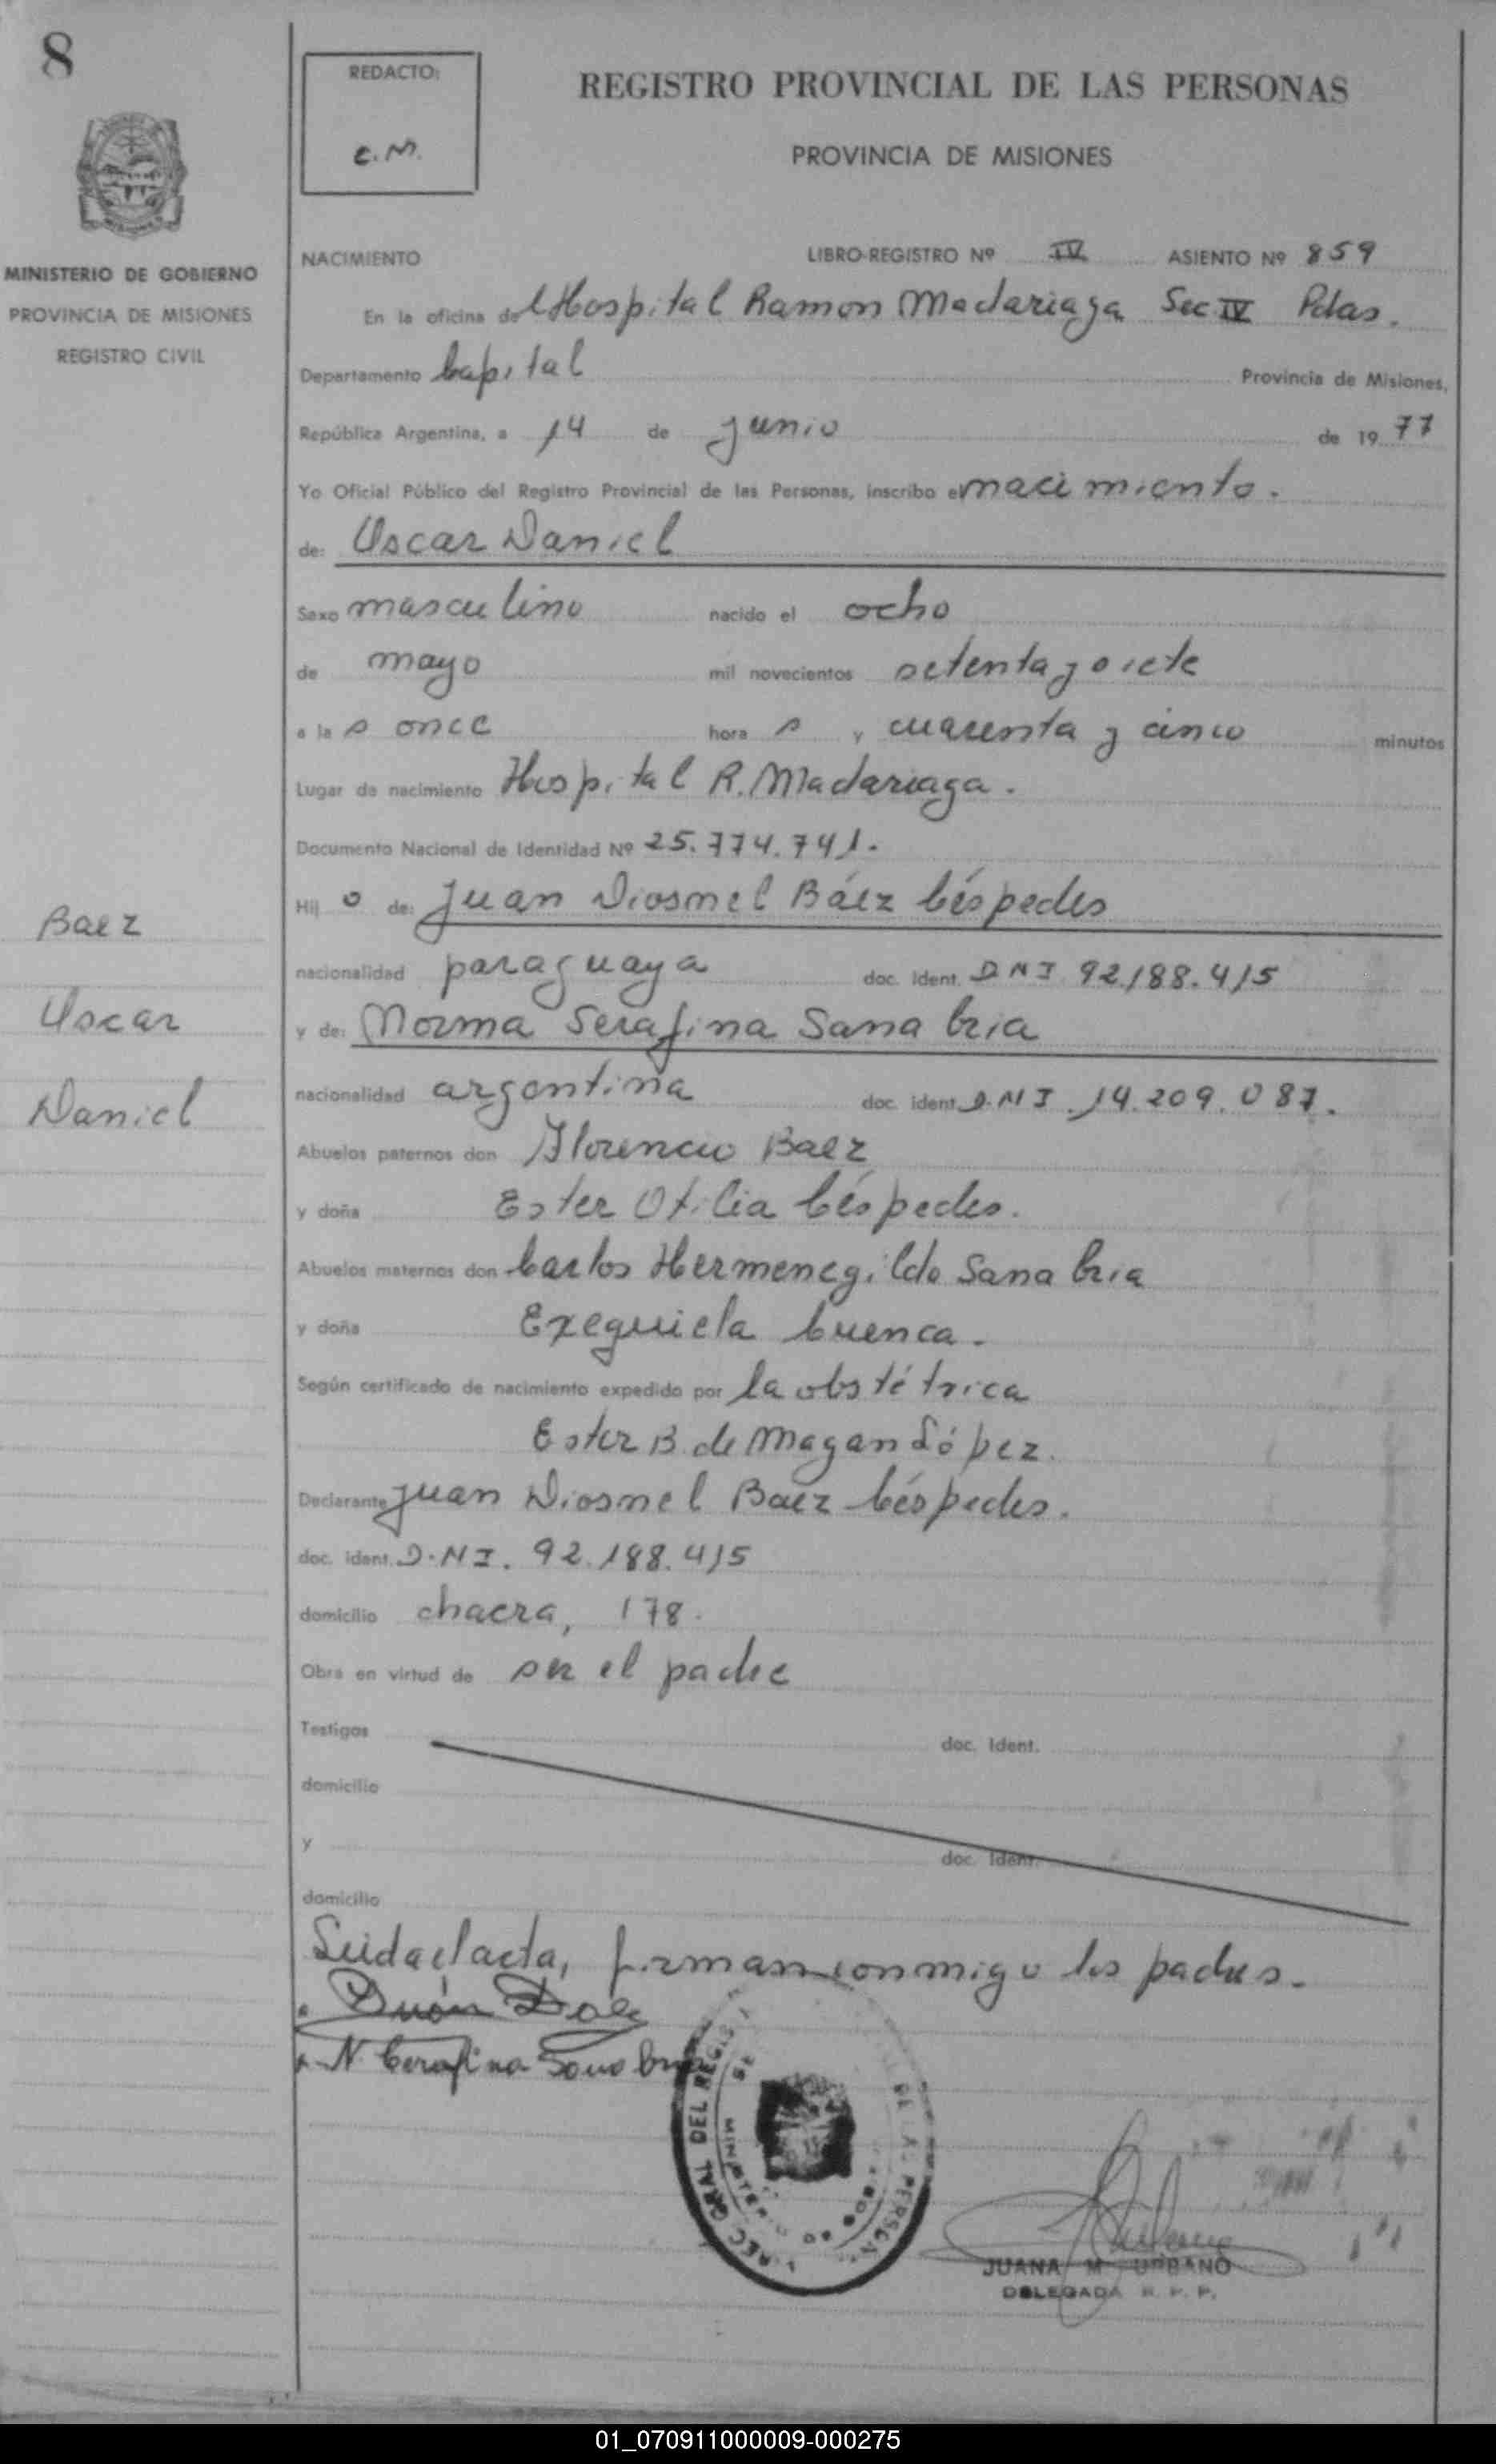 8
REDACTO:
C.M.
REGISTRO PROVINCIAL DE LAS PERSONAS
PROVINCIA DE MISIONES
MINISTERIO DE GOBIERNO
PROVINCIA DE MISIONES
REGISTRO CIVIL
NACIMIENTO LIBRO-REGISTRO Nº IV ASIENTO Nº 859
En la oficina del Hospital Ramon Madariaga Sec IV Pdas.
Departamento Capital Provincia de Misiones,
República Argentina, a 14 de junio de 1977
Yo Oficial Público del Registro Provincial de las Personas, inscribo el nacimiento.
de: Oscar Daniel
Sexo masculino nacido el ocho
de mayo mil novecientos setenta y siete
a las once horas y cuarenta y cinco minutos
Lugar de nacimiento Hospital R. Madariaga.
Documento Nacional de Identidad Nº 25.774.741.
Hijo de: Juan Diosnel Báez Céspedes
nacionalidad paraguaya doc. Ident. DNI 92.188.415
y de: Norma Serafina Sanabria
nacionalidad argentina doc. ident. D.N I. 14.209.087.
Abuelos paternos don Florencio Baez
y doña Ester Otilia Céspedes.
Abuelos maternos don Carlos Hermenegildo Sanabria
y doña Exequiela Cuenca.
Según certificado de nacimiento expedido por la obstétrica
Ester B. de Magan López.
Declarante Juan Diosnel Baez Céspedes.
doc. ident. D.N I. 92.188.415
domicilio chacra, 178.
Obra en virtud de ser el padre
Testigos doc. Ident.
domicilio
y doc. Ident.
domicilio
Leida el acta, firman conmigo los padres.
N. Cerafina Sanabria
JUANA M. URBANO
DELEGADA R. P. P.
Baez
Oscar
Daniel
01_070911000009-000275